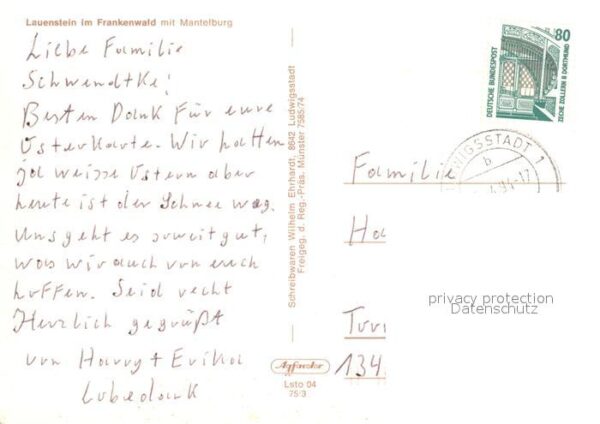 Lauenstein im Frankenwald mit Mantelburg
Liebe Familie
Schwendtke!
Besten Dank für eure
Osterkarte. Wir hatten
ja weisse Ostern aber
heute ist der Schnee weg.
Uns geht es soweit gut,
was wir auch von euch
hoffen. Seid recht
Herzlich gegrüßt
von Harry + Erika
Lobedank
Schreibwaren Wilhelm Ehrhardt, 8642 Ludwigsstadt
Freigeg. d. Reg.-Präs. Münster 7585/74
Agfacolor
Lsto 04
75/3
80
DEUTSCHE BUNDESPOST
ZECHE ZOLLERN II DORTMUND
WIGSSTADT 1
b
.94-17
Familie
Ha
privacy protection
Datenschutz
134